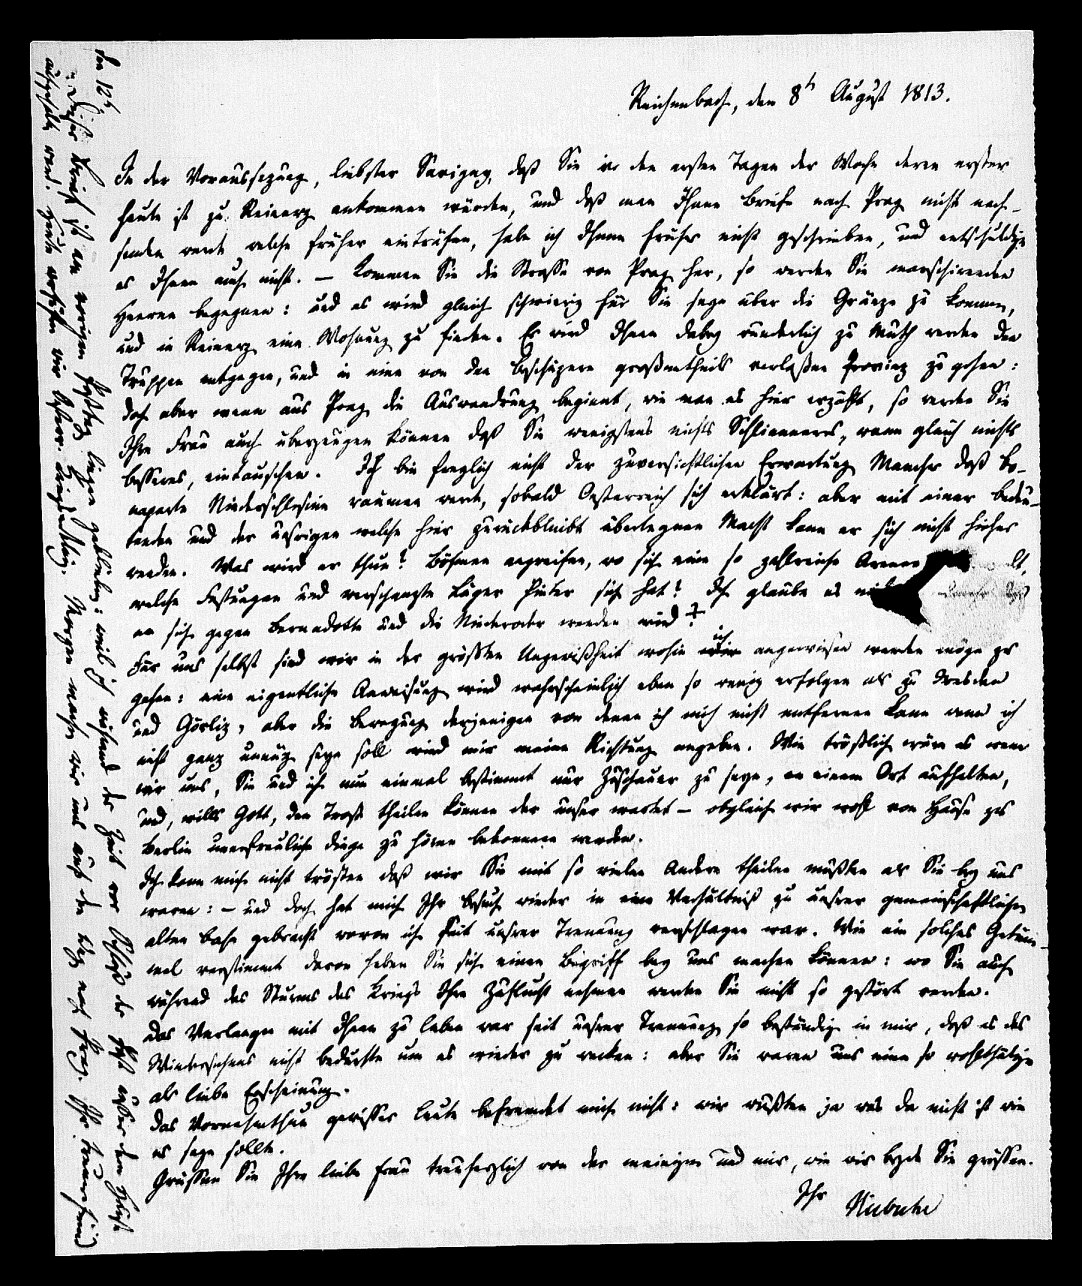 Reichenbach, den 8t August 1813.
In der Voraussezung, liebster Savigny, daß Sie in den ersten Tagen der Woche deren erster
heute ist zu Reinerz ankommen würden, und daß man Ihnen Briefe nach Prag nicht nach-
senden werde welche früher einträfen, habe ich Ihnen früher nicht geschrieben, und entschuldige
es Ihnen auch nicht. – Kommen Sie die Straße von Prag her, so werden Sie marschirenden
Heeren begegnen: und es wird gleich schwierig für Sie seyn über die Gränze zu kommen,
und in Reinerz eine Wohnung zu finden. Es wird Ihnen dabey wunderlich zu Muth werden den
Truppen entgegen, und in eine von den Besitzern großentheils verlaßne Provinz zu gehen:
doch aber wenn aus Prag die Auswandrung beginnt, wie man es hier erzählt, so werden Sie
Ihre Frau auch überzeugen können daß Sie wenigstens nichts Schlimmeres, wenn gleich nichts
besseres, eintauschen. Ich bin freylich nicht der zuversichtlichen Erwartung Mancher daß Bo-
naparte Niederschlesien räumen werde, sobald Oesterreich sich erklärt: aber mit einer bedeu-
tenden und der unsrigen welche hier zurückbleibt überlegnen Macht kann er sich nicht hieher
wenden. Was wird er thun? Böhmen angreifen, wo sich eine so zahlreiche Armee
welche Festungen und verschanzte Läger hinter sich hat? Ich glaube es
er sich gegen Bernadotte und die Niederoder wenden wird?
Für uns selbst sind wir in der größten Ungewißheit wohin ich angewiesen werden möge zu
gehen: eine eigentliche Anweisung wird wahrscheinlich eben so wenig erfolgen als zu Dresden
und Görliz, aber die Bewegung derjenigen von denen ich mich nicht entfernen kann wenn ich
nicht ganz unnüz seyn soll wird mir meine Richtung angeben. Wie tröstlich wäre es wenn
wir uns, Sie und ich nun einmal bestimmt nur Zuschauer zu seyn, an einem Ort aufhalten,
und, wills Gott, den Trost theilen können der unser wartet – obgleich wir wohl von Hause zu
Berlin unerfreuliche Dinge zu hören bekommen werden.
Ich kann mich nicht trösten daß wir Sie mit so vielen Andern theilen mußten als Sie bey uns
waren: – und doch hat mich Ihr Besuch wieder in ein Verhältniß zu unsrer gemeinschaftlichen
alten Bahn gebracht wovon ich seit unsrer Trennung verschlagen war. Wie ein solches Getüm-
mel verstimmt davon haben Sie sich einen Begriff bey uns machen können: wo Sie auch
während des Sturms des Kriegs Ihre Zuflucht nehmen werden Sie nicht so gestört werden.
Das Verlangen mit Ihnen zu leben war seit unsrer Trennung so beständig in mir, daß es des
Wiedersehens nicht bedurfte um es wieder zu wecken: aber Sie waren uns eine so wohlthätige
als liebe Erscheinung.
Das Vornehmthun gewisser Leute befremdet mich nicht: wir wußten ja was da nicht ist wie
es seyn sollte.
Grüßen Sie Ihre liebe Frau treuherzlich von der meinigen und mir, wie wir beyde Sie grüßen.
Ihr Niebuhr
den 12t
Dieser Brief ist am vorigen Posttag liegen geblieben: weil ich während der Zeit vor Schluß der Post außer dem Hause
aufgehalten ward. Heute Morgen machen wir uns auf den Weg nach Prag. Ihr treuer Freund